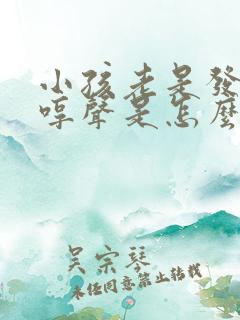 小孩老是發
哼聲是怎麼
吴宗琴
未经同意禁止转载